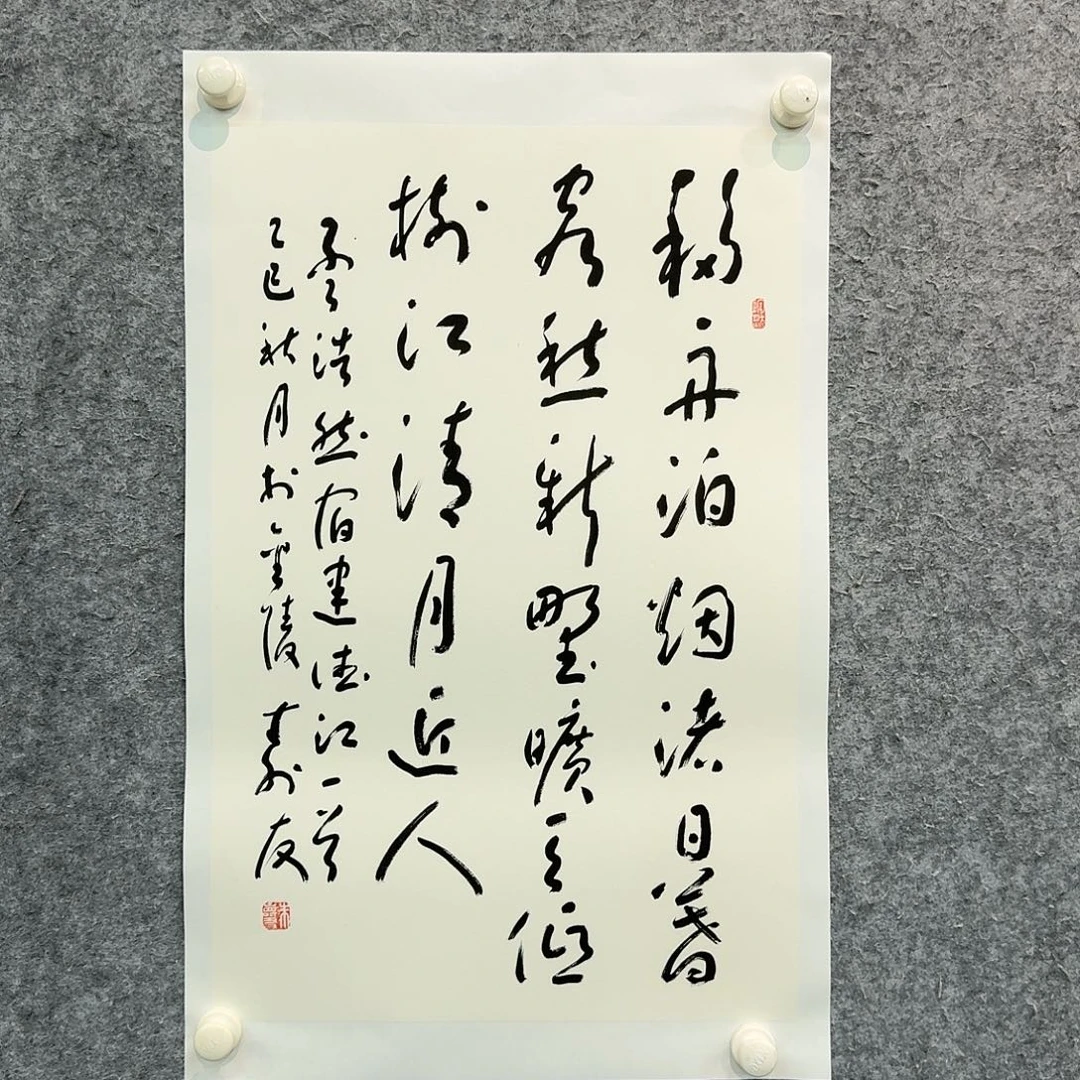 移舟泊烟渚日暮
客愁新野曠天低
樹江清月近人
孟浩然宿建德江一首
乙巳秋月於金陵
友